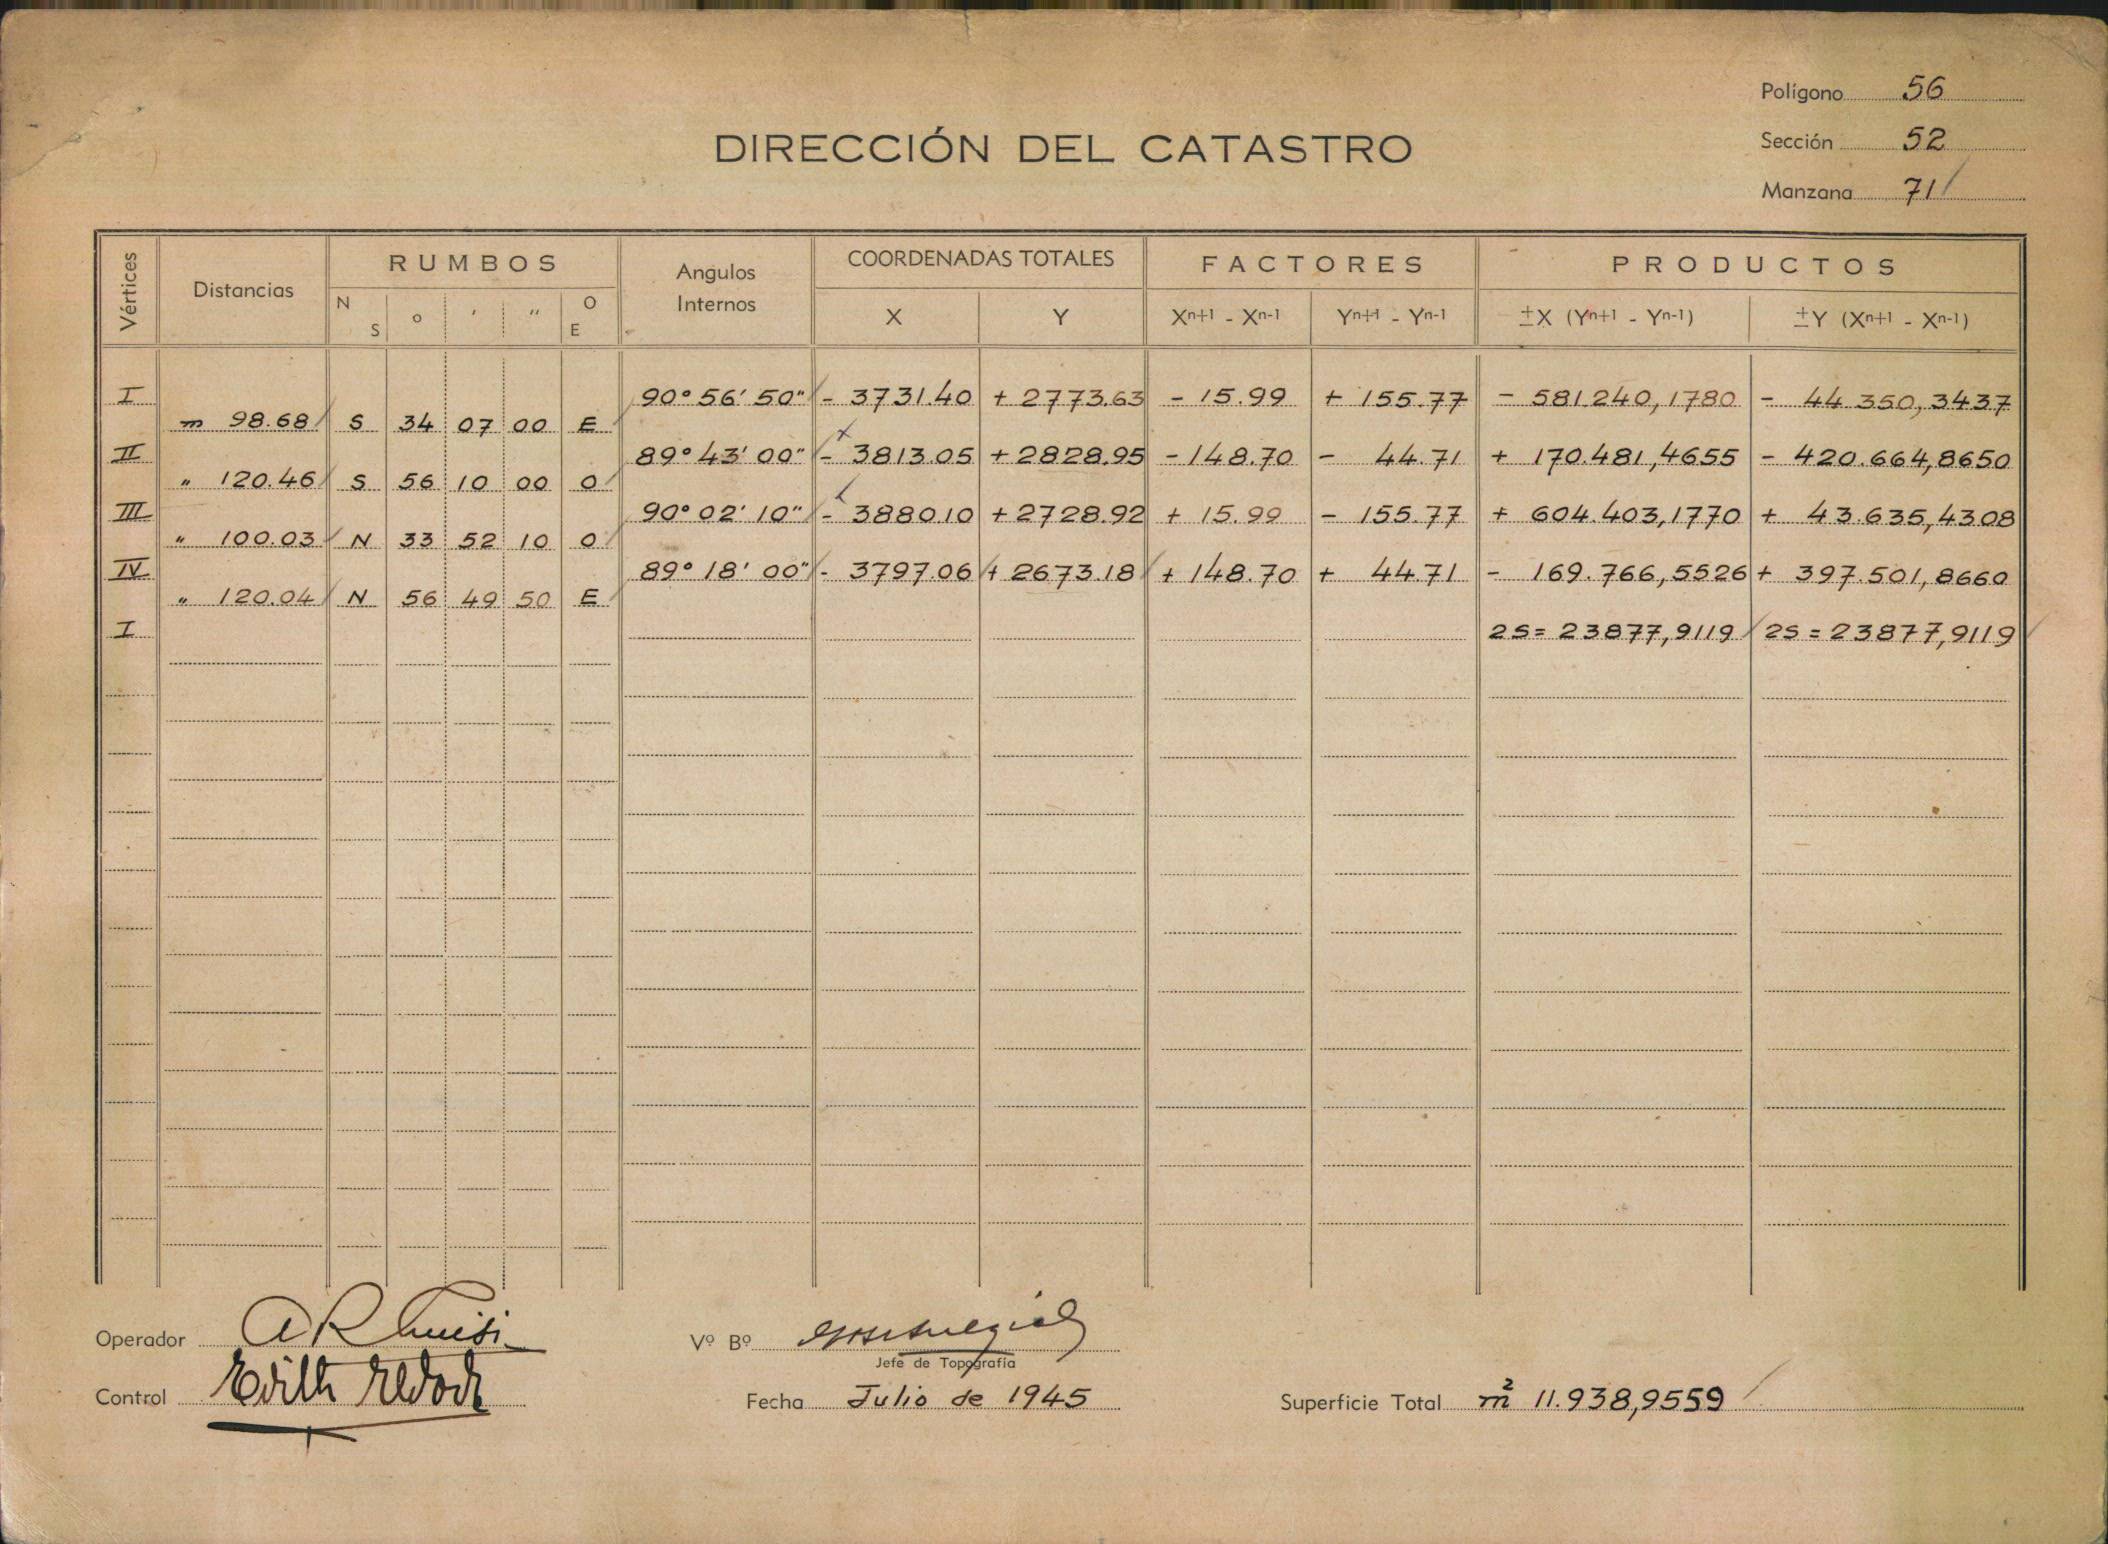 Polígono 56
DIRECCIÓN DEL CATASTRO
Sección 52
Manzana 71
Vértices Distancias RUMBOS Angulos Internos COORDENADAS TOTALES FACTORES PRODUCTOS
N S o ' " O E X Y Xn+1 - Xn-1 Yn+1 - Yn-1 ±X (Yn+1 - Yn-1) ±Y (Xn+1 - Xn-1)
I 90° 56' 50" - 3731.40 + 2773.63 - 15.99 + 155.77 - 581.240,1780 - 44.350,3437
m 98.68 S 34 07 00 E
II 89° 43' 00" - 3813.05 + 2828.95 - 148.70 - 44.71 + 170.481,4655 - 420.664,8650
" 120.46 S 56 10 00 O
III 90° 02' 10" - 3880.10 + 2728.92 + 15.99 - 155.77 + 604.403,1770 + 43.635,4308
" 100.03 N 33 52 10 O
IV 89° 18' 00" - 3797.06 + 2673.18 + 148.70 + 44.71 - 169.766,5526 + 397.501,8660
" 120.04 N 56 49 50 E
I 2S = 23877,9119 2S = 23877,9119
Operador
Vº Bº
Jefe de Topografía
Control Edith
Fecha Julio de 1945
Superficie Total m² 11.938,9559